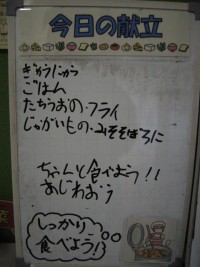 今日の献立
ぎゅうにゅう
ごはん
たちうおのフライ
じゃがいもの・みそそぼろに
ちゃんと食べよう!!
あじわおう
しっかり
食べよう!?